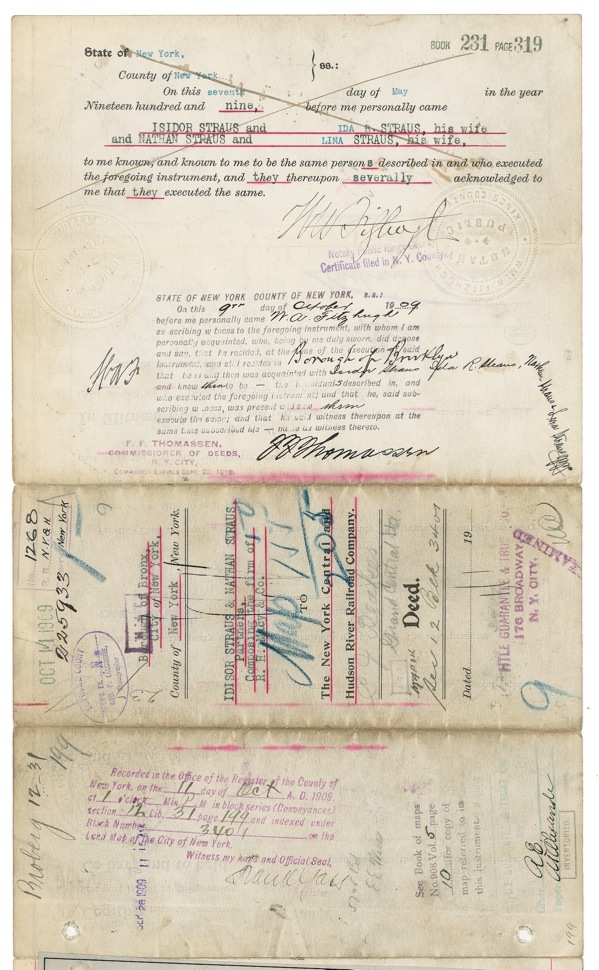 BOOK 231 PAGE 319
State of New York,
County of New York
ss.:
On this seventh day of May in the year
Nineteen hundred and nine, before me personally came
ISIDOR STRAUS and IDA R. STRAUS, his wife
and NATHAN STRAUS and LINA STRAUS, his wife,
to me known, and known to me to be the same persons described in and who executed
the foregoing instrument, and they thereupon severally acknowledged to
me that they executed the same.
Notary Public Kings
Certificate filed in N. Y. County
STATE OF NEW YORK COUNTY OF NEW YORK, s.s.:
On this 9th day of October 1909
before me personally came W. A. Fitzhugh
subscribing witness to the foregoing instrument, with whom I am
personally acquainted, who, being by me duly sworn, did depose
and say, that he resided, at the time of the execution of said
instrument, and still resides in Borough of Brooklyn
that he is and then was acquainted with Isidor Straus Ida R Straus, Nathan
and knew them to be the individuals described in, and
who executed the foregoing instrument; and that he, said sub-
scribing witness, was present and saw them
execute the same; and that he, said witness thereupon at the
same time subscribed his name as witness thereto.
F. F. THOMASSEN,
COMMISSIONER OF DEEDS,
N. Y. CITY.
FF Thomassen
No. 1268
R. R. N.Y. & H.
New York
OCT 11 1909
225933
Borough of Bronx,
City of New York,
County of New York New York.
IDISOR STRAUS & NATHAN STRAUS
Partners,
Composing the firm of
TO
The New York Central and
Hudson River Railroad Company.
Deed.
Sec 12 Blk 3401
Dated 19
EXAMINED
TITLE GUARANTEE & TRUST CO.
176 BROADWAY
N. Y. CITY.
9
Broberg 12-31
199
Recorded in the Office of the Register of the County of
New York, on the 11 day of Oct A. D. 1909,
at 1 o'clock Min. P M in block series (Conveyances)
section 12 Lib. 31 page 199 and indexed under
Block Number 3401 on the
Land Map of the City of New York.
Witness my hand and Official Seal.
SEP 28 1909
See Book of maps
No 906 Vol. 5 page
10 for copy of
map referred to in
this instrument
INVENTORIED
199